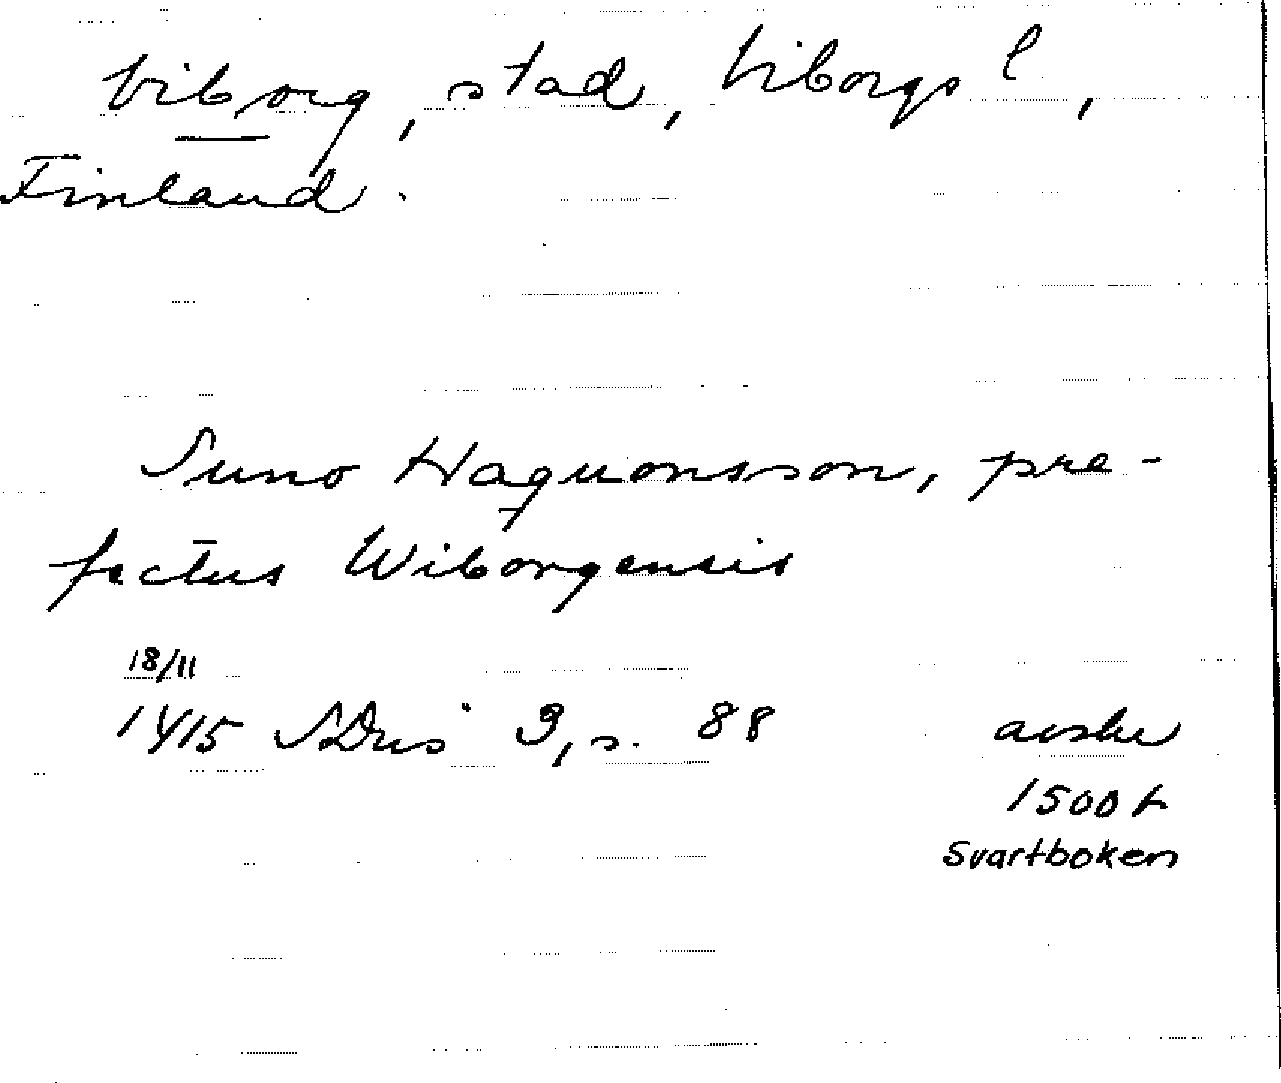 Viborg, stad, Viborgs l,
Finland.
Suno Haquonsson, pre-
fectus Wiborgensis
18/11
1415 SDns 3, s. 88 avskr
1500 t
Svartboken